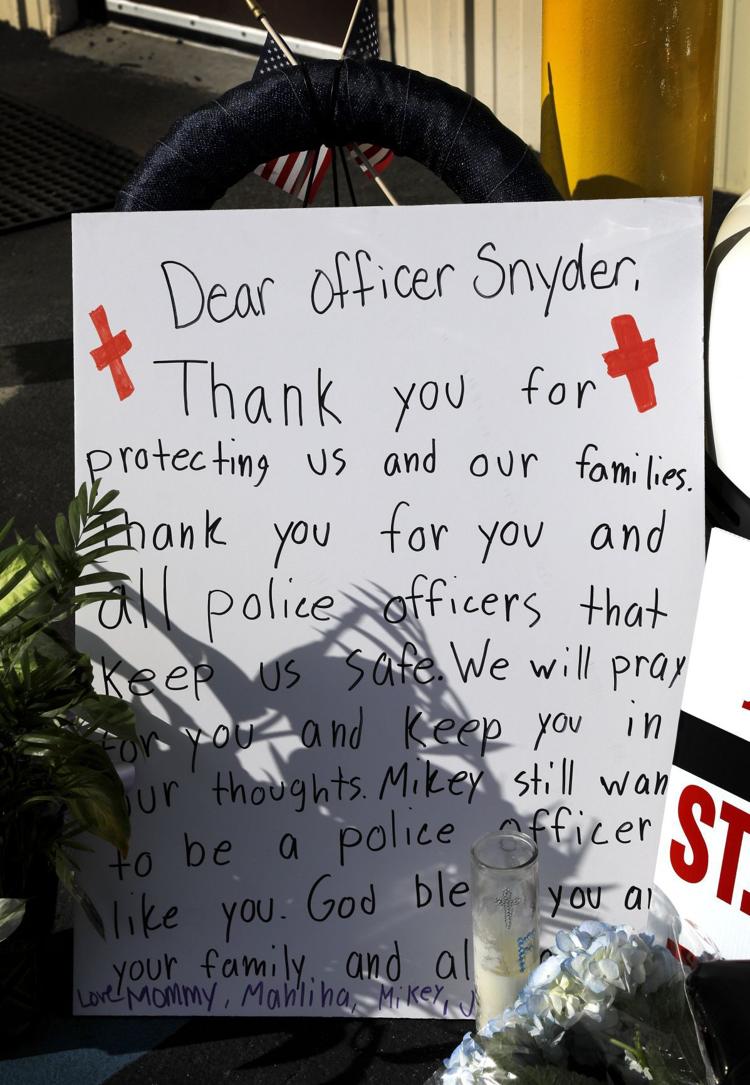 Dear officer Snyder,
Thank you for
protecting us and our families.
Thank you for you and
all police officers that
keep us safe. We will pray
for you and keep you in
our thoughts. Mikey still wan
to be a police officer
like you. God ble you
your family and al
Love-Mommy, Mahliha, Mikey, J
ST